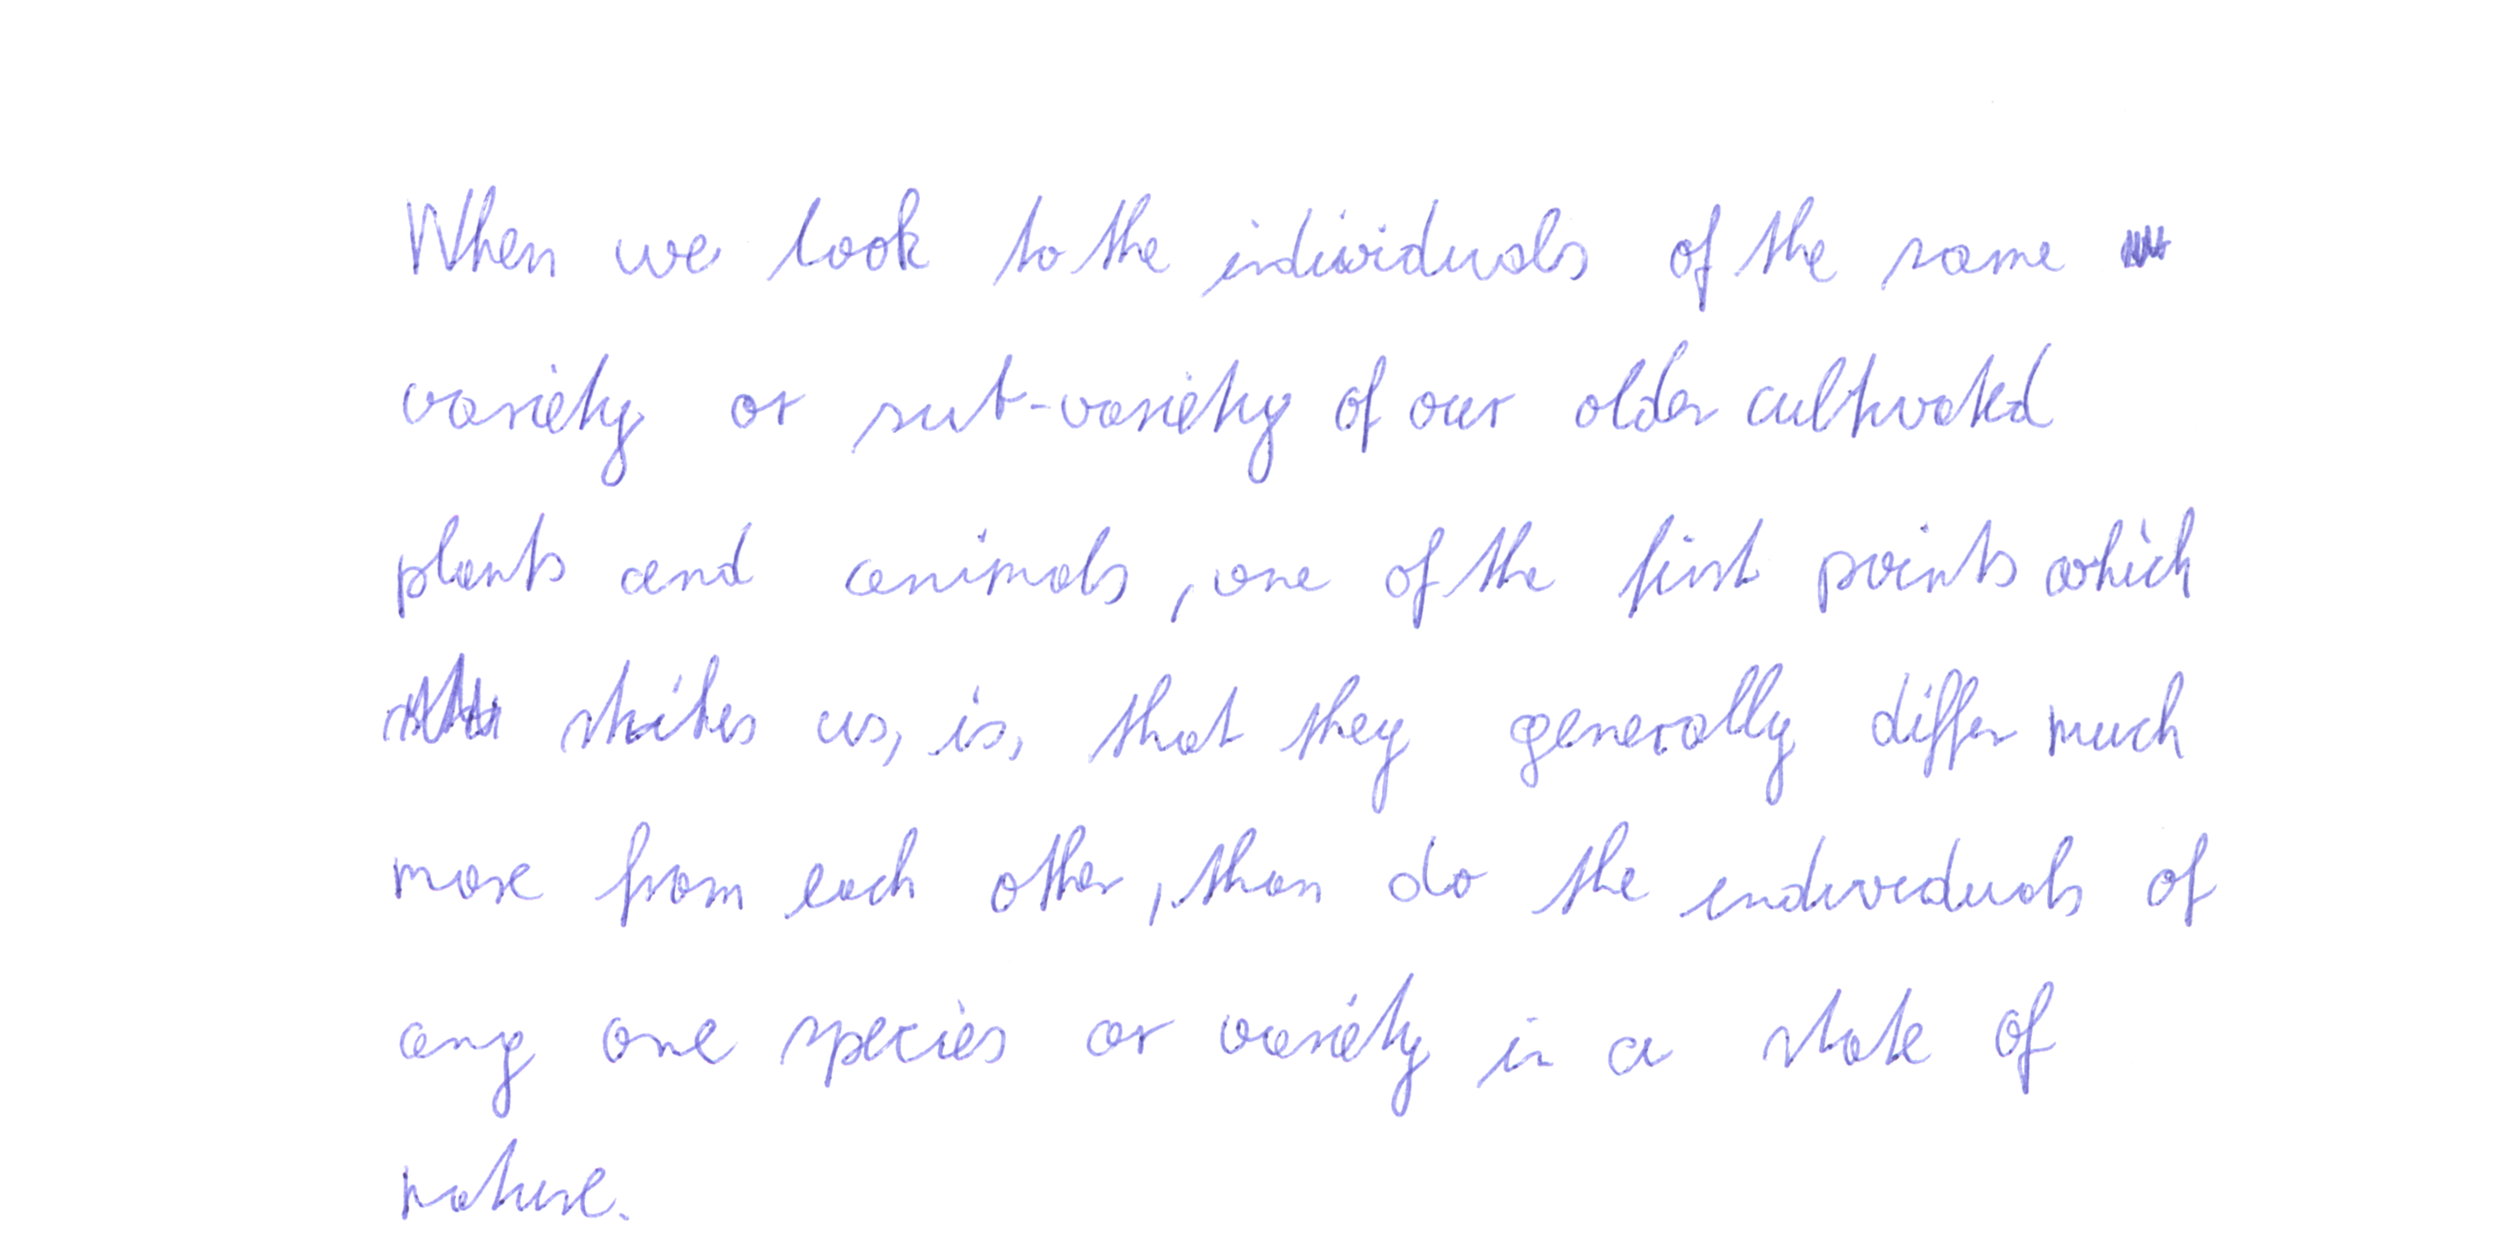 When we look to the individuals of the same
variety or sub-variety of our older cultivated
plants and animals, one of the first points which
strikes us, is, that they generally differ much
more from each other, than do the individuals of
any one species or variety in a state of
nature.